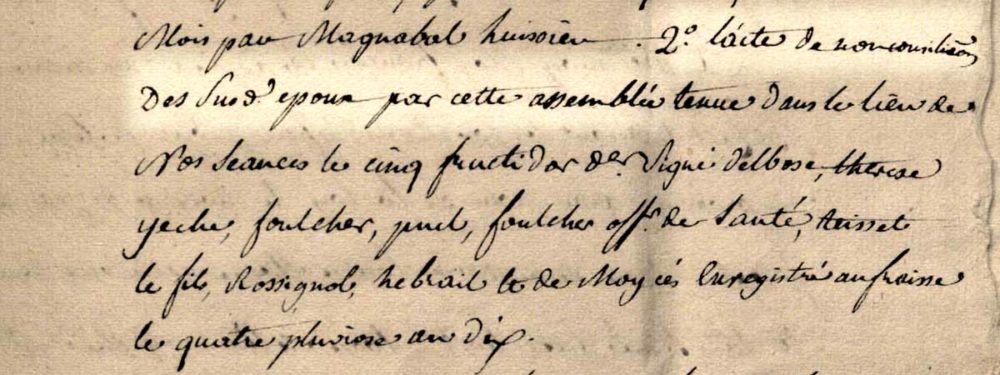 Mois par Magnabal huissier. 2° l'acte de nonconciliaôn
Des Susd. epoux par cette assemblée tenue dans le lieu de
Nos Seances le cinq fructidor der. Signé delbose, therese
yeche, foulcher, puel, foulcher offr. de Santé, teisset
le fils, Rossignol, hebrail et de Moy cés Enregistré au fraisse
le quatre pluviose an dix.